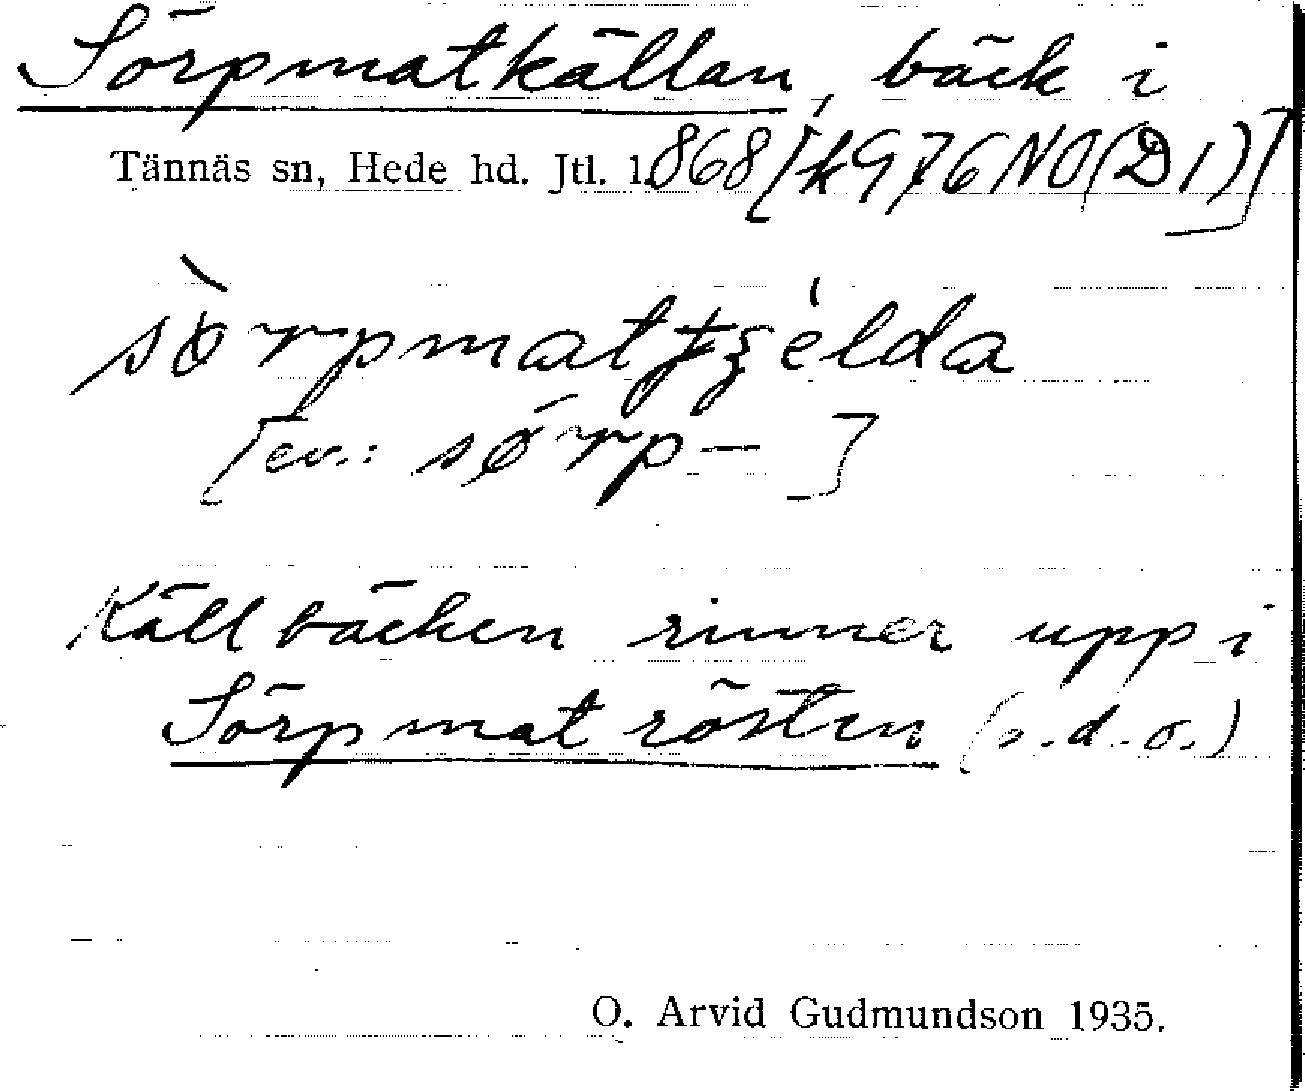 Sörpmatkällan, bäck i
Tännäs sn, Hede hd. Jtl. l. 868 [k976NO(D1)]
[ev.: sørp- ]
Källbäcken rinner upp i
Sörpmatrösten (s.d.o.)
O. Arvid Gudmundson 1935.